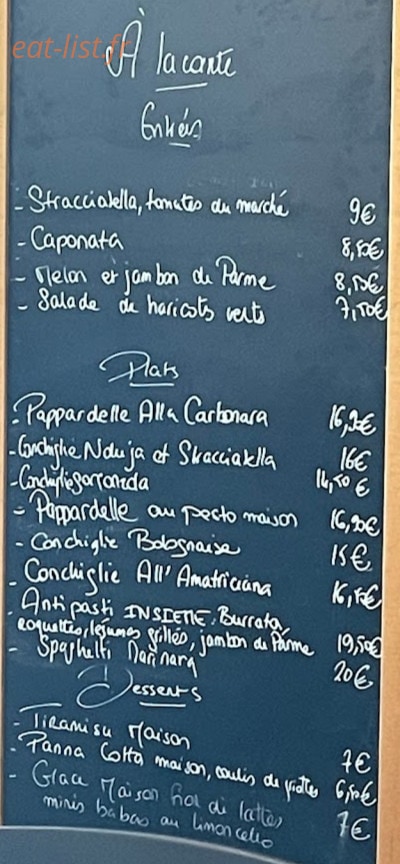 eat-list.fr
À la carte
Entrées
- Stracciatella, tomates du marché 9€
- Caponata 8,50€
- Melon et jambon de Parme 8,50€
- Salade de haricots verts 7,50€
Plats
- Pappardelle Alla Carbonara 16,90€
- Conchiglie Nduja et Stracciatella 16€
- Conchiglie 14,50€
- Pappardelle au pesto maison 16,90€
- Conchiglie Bolognaise 15€
- Conchiglie All'Amatriciana 16,50€
- Antipasti INSIEME: Burrata,
roquettes, légumes grillés, jambon de Parme 19,50€
- Spaghetti Marinara 20€
Desserts
- Tiramisu Maison 7€
- Panna Cotta maison, coulis de 6,50€
- Glace Maison fior di latte,
minis babas au limoncello 7€